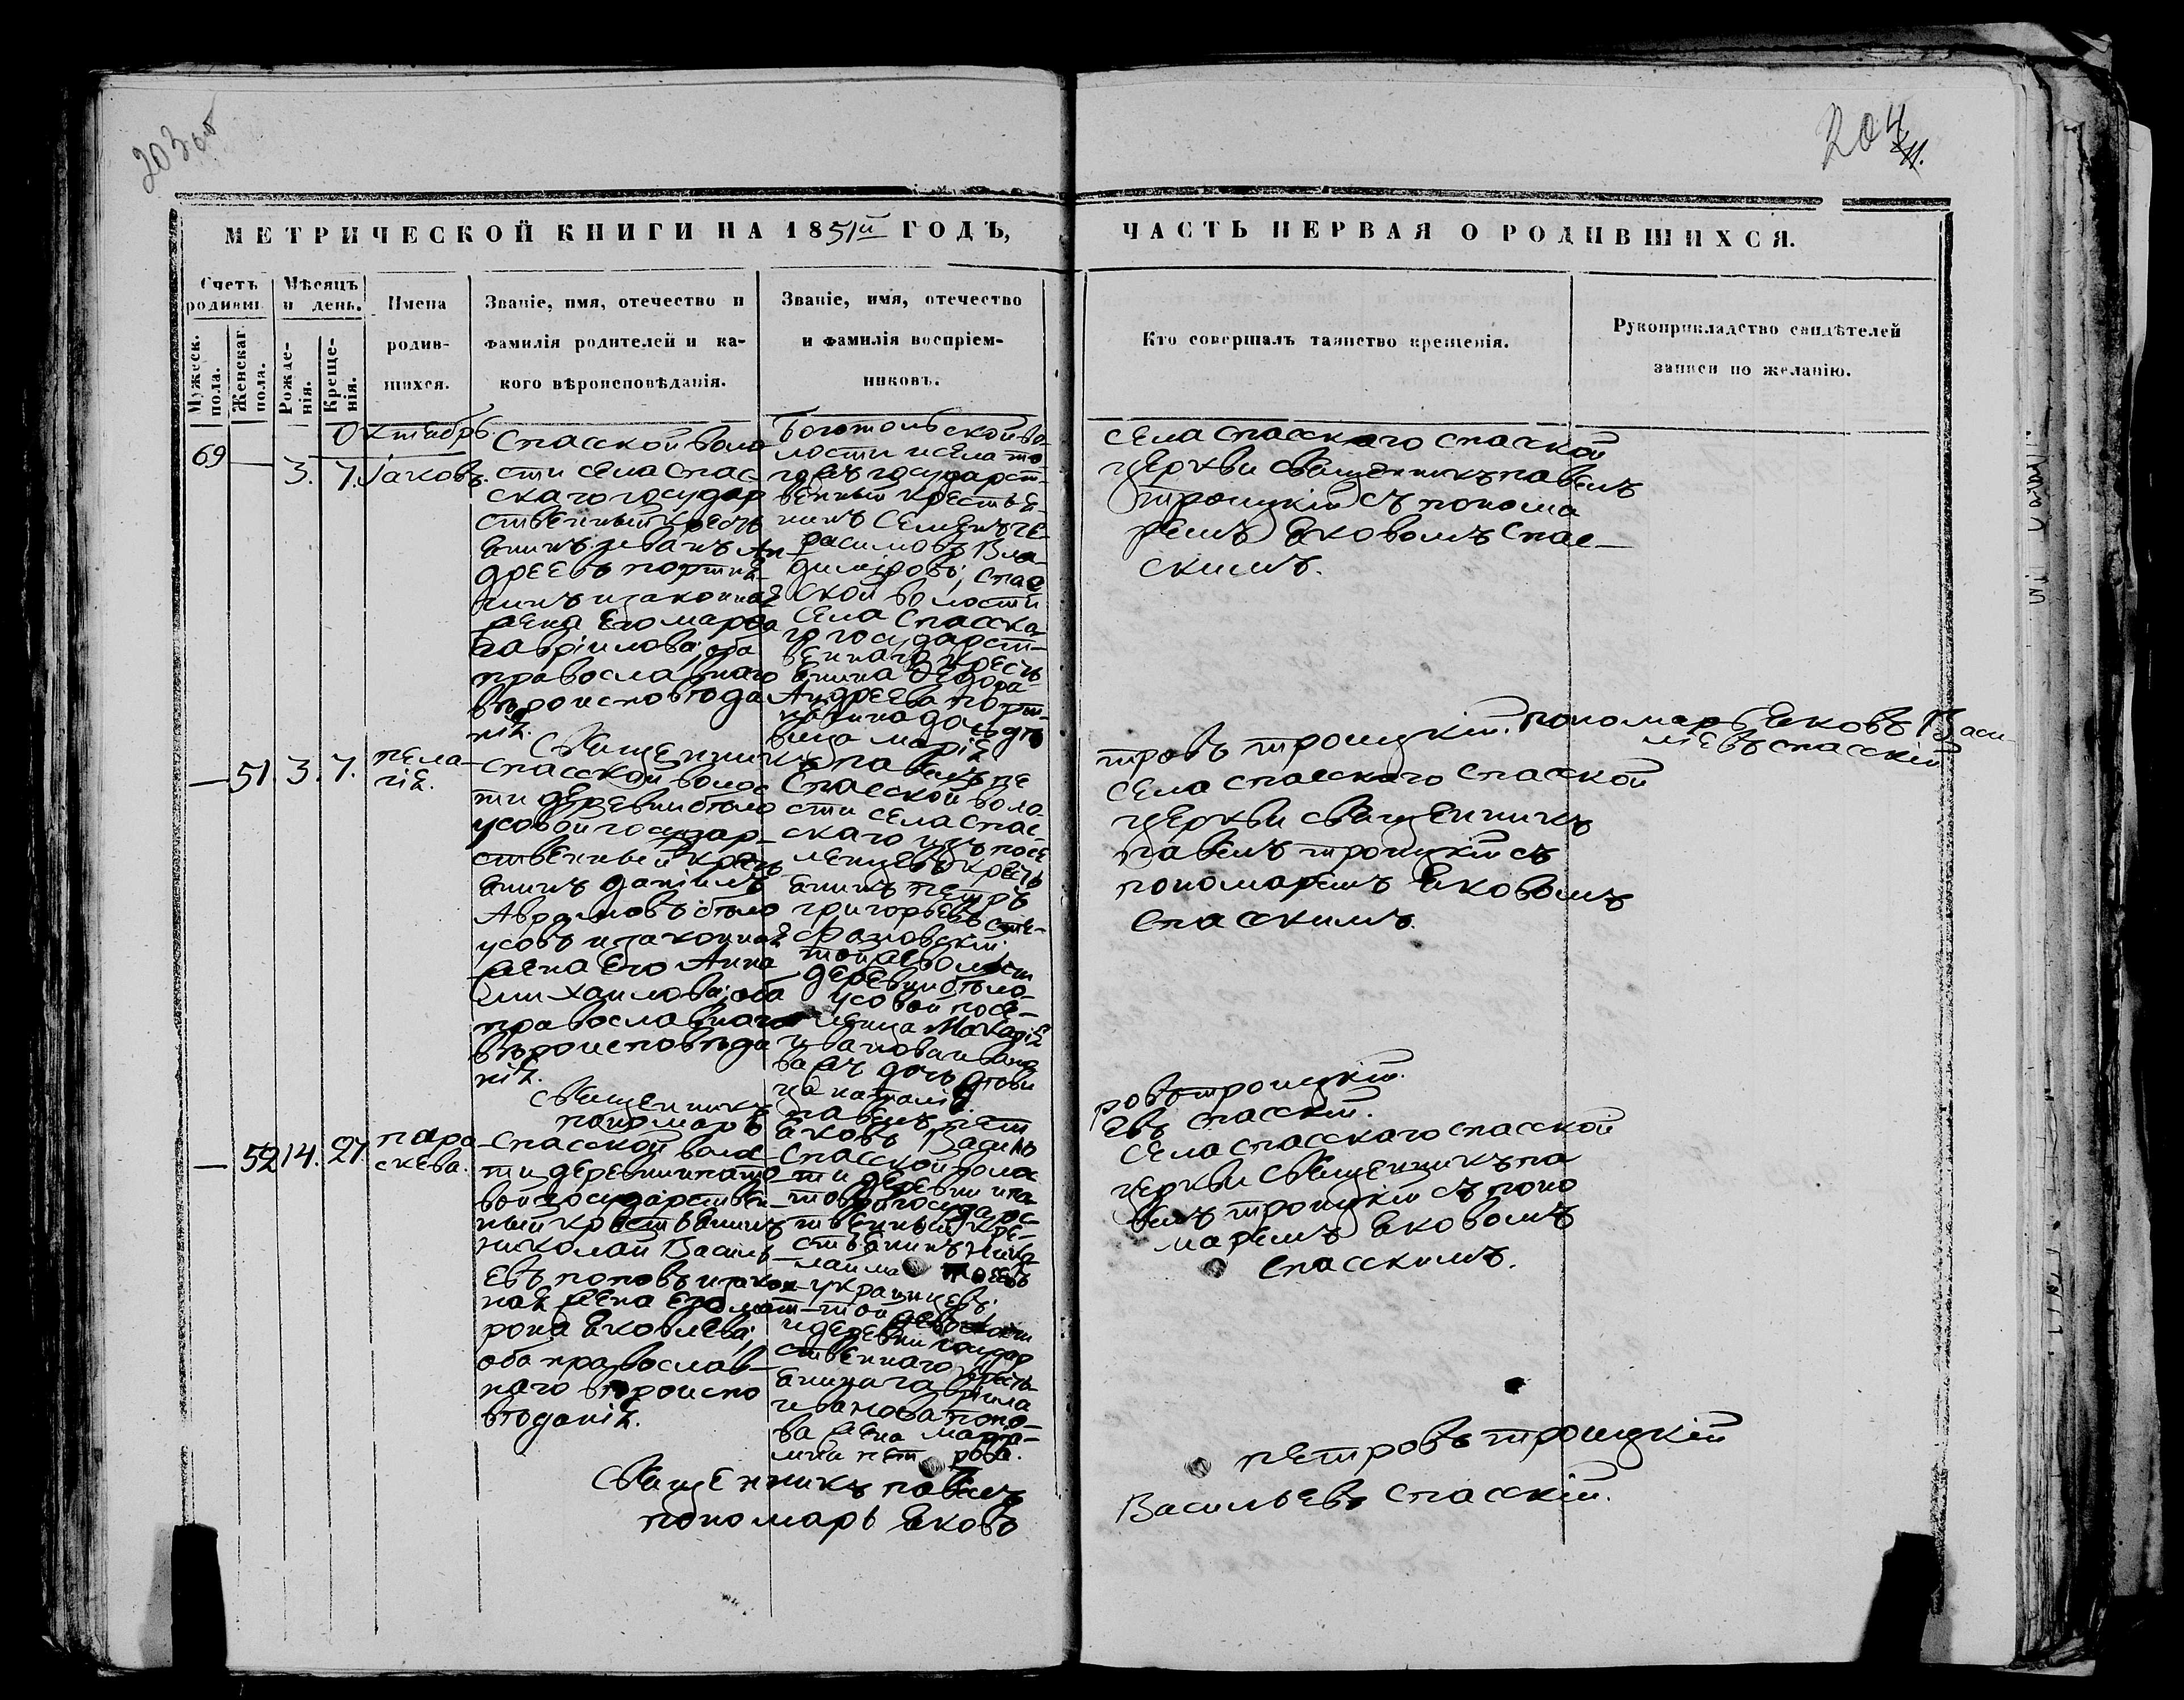 203 об
204
МЕТРИЧЕСКОЙ КНИГИ НА 1851й ГОДЪ,
ЧАСТЬ ПЕРВАЯ О РОДИВШИХСЯ.
Счетъ родивш.
Мѣсяцъ и день.
Мужеск. пола.
Женскаг пола.
Рожденія.
Крещенія.
Имена
родив-
шихся.
Званіе, имя, отечество и
фамилія родителей и ка-
кого вѣроисповѣданія.
Званіе, имя, отечество
и фамилія воспріем-
никовъ.
Кто совершалъ таинство крещенія.
Рукоприкладство свидѣтелей
записи по желанію.
Октябрь
69 — 3. 7. Іаковъ.
Спасской воло
сти села Спас
скаго государ
ственный кресть
янинъ Иванъ Ан
дреевъ портня
гинъ и законная
жена его марфа
Гавріилова; оба
православнаго
вѣроисповѣда
нія.
Боготольской во-
лости и села то
гожъ государст-
венный крестья-
нинъ Семенъ Ге-
расимовъ Вла-
диміровъ; Спас
ской волости
села Спасска-
го государст-
веннаго кресть
янина Федора
Андреева порт-
нягина дочь дѣ
вица марія
села Спасскаго Спасской
церкви священникъ павелъ
троицкій съ понома
ремъ Яковомъ Спас-
скимъ.
Священникъ павелъ пе
тровъ троицкій. пономарь Яковъ Васи-
льевъ Спасскій
— 51. 3. 7. пела-
гія.
Спасской волос
ти деревни бѣло
усовой государ-
ственный кресть
янинъ даніилъ
Аврамовъ бѣло
усовъ и законная
жена его Анна
михаилова; оба
православнаго
вѣроисповѣда
нія.
Спасской воло
сти села Спас-
скаго изъ посе
ленцевъ кресть
янинъ петръ
григорьевъ
тойже волости
деревни бѣло-
усовой посе-
ленца
иванова
ва дочь дѣви
ца наталія.
села Спасскаго Спасской
церкви священникъ
павелъ троицкій съ
пономаремъ Яковомъ
Спасскимъ.
Священникъ павелъ пет
ровъ троицкій.
пономарь Яковъ Василь
евъ Спасскій.
— 52 14. 27. пара
скева.
Спасской воло
ти деревни
вой государствен-
ный крестьянинъ
николай Василь-
евъ поповъ и закон-
ная жена его мат-
рона Яковлева;
оба православ-
наго вѣроиспо
вѣданія.
Спасской волос
ти деревни
государс-
твенный кре-
стьянинъ Нико
лай
украинцевъ;
той жеволости
идеревни государ
ственнаго кресть
янина гавріила
иванова попо-
ва жена
пет рова.
села Спасскаго Спасской
церкви священникъ па
велъ троицкій съ поно
маремъ Яковомъ
Спасскимъ.
Священникъ павелъ
петровъ троицкій
пономарь Яковъ
Васильевъ Спасскій.